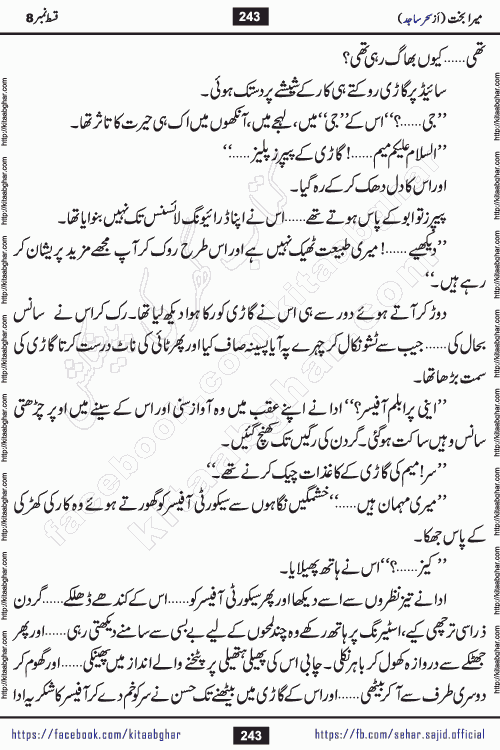 میرا بخت (از سحر ساجد) 243 قسط نمبر 8
تھی...... کیوں بھاگ رہی تھی؟
سائیڈ پر گاڑی روکتے ہی کار کے شیشے پر دستک ہوئی۔
”جی......؟“ اس کے ”جی“ میں، لہجے میں، آنکھوں میں اک ہی حیرت کا تاثر تھا۔
”السلام علیکم میم......! گاڑی کے پیپرز پلیز......“
اور اس کا دل دھک کر کے رہ گیا۔
پیپرز تو ابو کے پاس ہوتے تھے...... اس نے اپنا ڈرائیونگ لائسنس تک نہیں بنوایا تھا۔
”دیکھیے......! میری طبیعت ٹھیک نہیں ہے اور اس طرح روک کر آپ مجھے مزید پریشان کر
رہے ہیں۔“
دوڑ کر آتے ہوئے دور سے ہی اس نے گاڑی کو رکا ہوا دیکھ لیا تھا۔ رک کر اس نے سانس
بحال کی...... جیب سے ٹشو نکال کر چہرے پہ آیا پسینہ صاف کیا اور پھر ٹائی کی ناٹ درست کرتا گاڑی کی
سمت بڑھا تھا۔
”اینی پرابلم آفیسر؟“ ادا نے اپنے عقب میں وہ آواز سنی اور اس کے سینے میں اوپر چڑھتی
سانس وہیں ساکت ہو گئی۔ گردن کی رگیں تک کھنچ گئیں۔
”سر! میم کی گاڑی کے کاغذات چیک کرنے تھے۔“
”میری مہمان ہیں......“ خشمگیں نگاہوں سے سیکورٹی آفیسر کو گھورتے ہوئے وہ کار کی کھڑکی
کے پاس جھکا۔
”کیز......؟“ اس نے ہاتھ پھیلایا۔
ادا نے تیز نظروں سے اسے دیکھا اور پھر سیکورٹی آفیسر کو...... اس کے کندھے ڈھلکے...... گردن
ذرا سی ترچھی کیے، اسٹیرنگ پر ہاتھ رکھے وہ چند لمحوں کے لیے بے بسی سے دیکھتی رہی...... اور پھر
جھٹکے سے دروازہ کھول کر باہر نکلی۔ چابی اس کی پھیلی ہتھیلی پر پٹخنے والے انداز میں پھینکی...... اور گھوم کر
دوسری طرف سے آ کر بیٹھی...... اور اس کے گاڑی میں بیٹھنے تک حسن نے سر کو خم دے کر آفیسر کا شکریہ ادا
https://facebook.com/kitaabghar 243 https://fb.com/sehar.sajid.official
http://kitaabghar.com
facebook.com/kitaabghar
kitaabghar.com